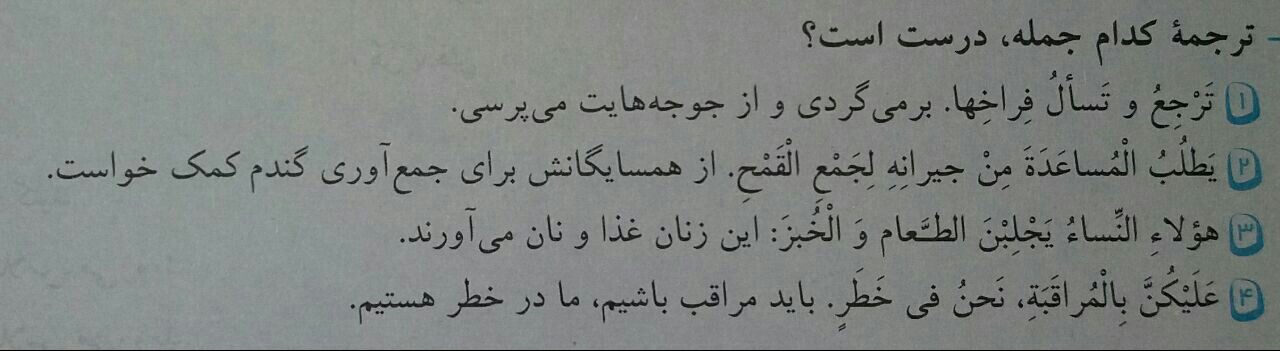 - ترجمهٔ کدام جمله، درست است؟
۱ تَرْجِعُ و تَسألُ فِراخِها. برمی‌گردی و از جوجه‌هایت می‌پرسی.
۲ یَطلُبُ الْمُساعَدَةَ مِنْ جیرانِهِ لِجَمْعِ الْقَمْحِ. از همسایگانش برای جمع‌آوری گندم کمک خواست.
۳ هؤلاءِ النِّساءُ یَجْلِبْنَ الطَّعام وَ الْخُبزَ: این زنان غذا و نان می‌آورند.
۴ عَلَیْکُنَّ بِالْمُراقَبَةِ، نَحنُ فی خَطَرٍ. باید مراقب باشیم، ما در خطر هستیم.